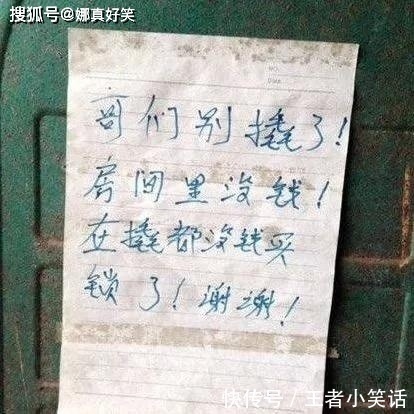 搜狐号@娜真好笑
NO.
DATE
哥们别撬了!
房间里没钱!
在撬都没钱买
锁了!谢谢!
快传号/王者小笑话